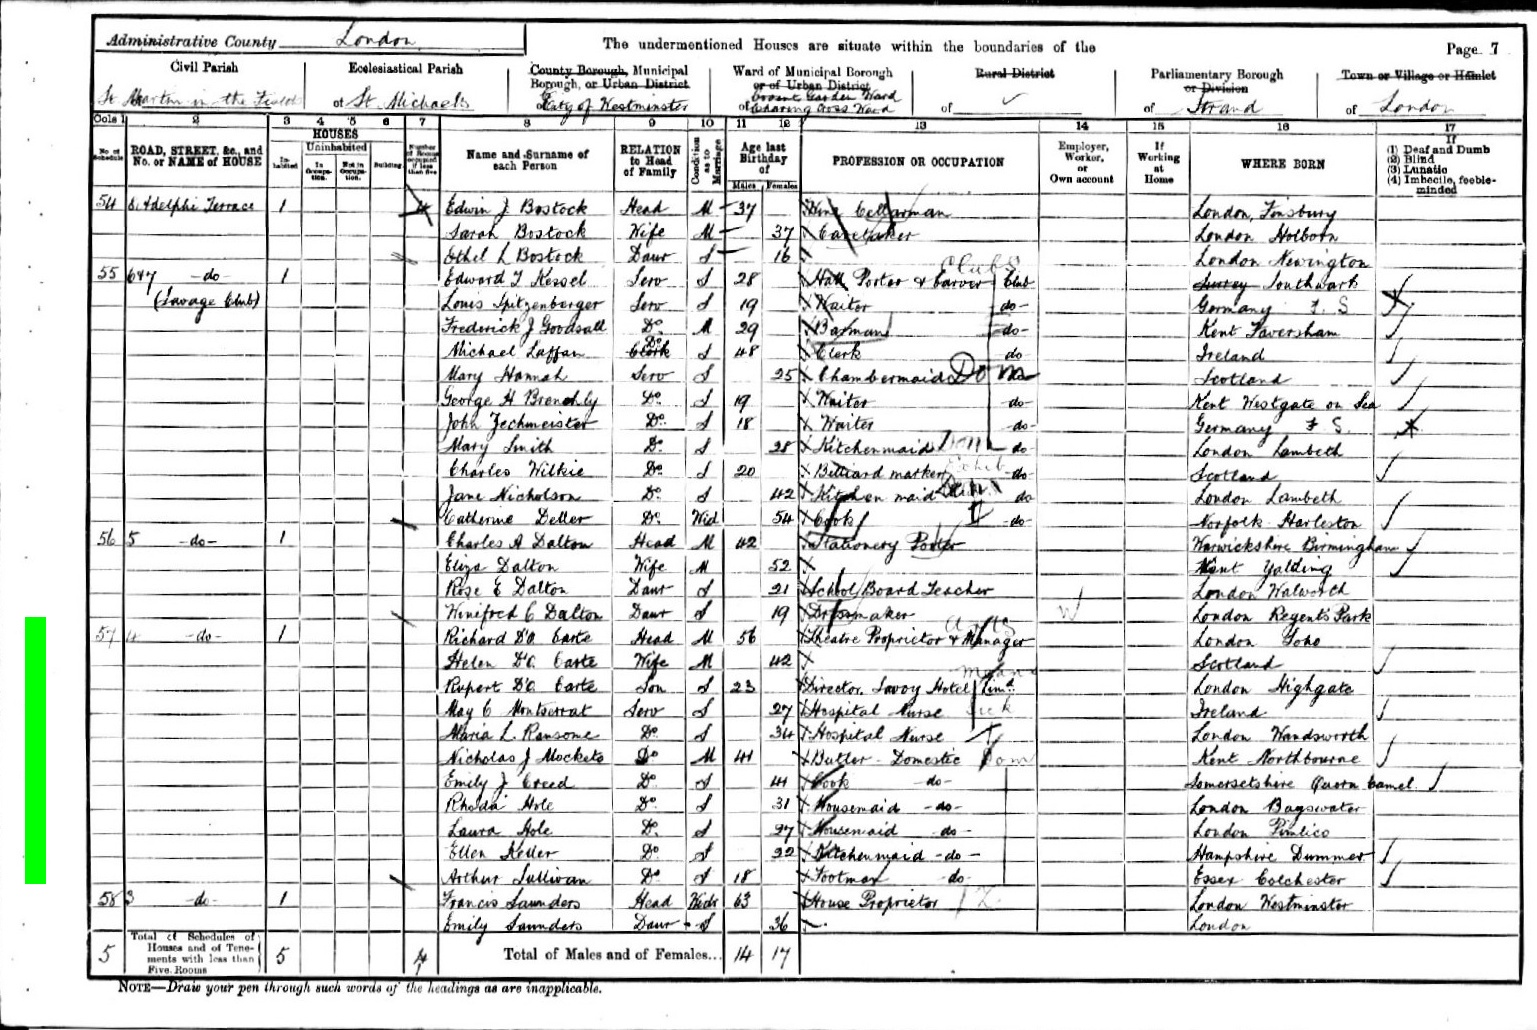 Administrative County London
The undermentioned Houses are situate within the boundaries of the
Page 7
Civil Parish
St Martin in the Fields
Ecclesiastical Parish
of St Michaels
County Borough, Municipal Borough, or Urban District
City of Westminster
Ward of Municipal Borough or of Urban District
of Covent Garden Ward
Charing Cross Ward
Rural District
of
Parliamentary Borough or Division
of Strand
Town or Village or Hamlet
of London
Cols 1 2 3 4 5 6 7 8 9 10 11 12 13 14 15 16 17
No. of Schedule
ROAD, STREET, &c., and No. or NAME of HOUSE
HOUSES
Inhabited
Uninhabited
In Occupation.
Not in Occupation.
Building
Number of Rooms occupied if less than five
Name and Surname of each Person
RELATION to Head of Family
Condition as to Marriage
Age last Birthday of
Males Females
PROFESSION OR OCCUPATION
Employer, Worker, or Own account
If Working at Home
WHERE BORN
If
(1) Deaf and Dumb
(2) Blind
(3) Lunatic
(4) Imbecile, feeble-minded
54 8. Adelphi Terrace 1 4 Edwin J Bostock Head M 37 Wine Cellarman London, Finsbury
Sarah Bostock Wife M 37 Caretaker London Holborn
Ethel L Bostock Daur S 16 London Newington
55 6 & 7 -do- 1 Edward T Kessel Serv S 28 Hall Porter & Carver Club Surrey Southwark
(Savage Club) Louis Spitzenberger Serv S 19 Waiter -do- Germany F. S
Frederick J Goodsall Do M 29 Barman -do- Kent Faversham
Michael Laffan Clerk Do S 48 Clerk do Ireland
Mary Hannah Serv S 25 Chambermaid Dom Scotland
George H Brenchly Do S 19 Waiter -do- Kent Westgate on Sea
John Zechmeister Do S 18 Waiter -do- Germany F S.
Mary Smith Do S 28 Kitchenmaid Dom do London Lambeth
Charles Wilkie Do S 20 Billiard marker -do- Scotland
Jane Nicholson Do S 42 Kitchen maid do London Lambeth
Catherine Deller Do Wid 54 Cook -do- Norfolk Harleston
56 5 -do- 1 Charles A Dalton Head M 42 Stationery Porter Warwickshire Birmingham
Eliza Dalton Wife M 52 Kent Yalding
Rose E Dalton Daur S 21 School Board Teacher London Walworth
Winifred C Dalton Daur S 19 Dressmaker W London Regents Park
57 4 -do- 1 Richard D'O. Carte Head M 56 Theatre Proprietor & Manager London Soho
Helen D'O. Carte Wife M 42 Scotland
Rupert D'O. Carte Son S 23 Director, Savoy Hotel Limd London Highgate
May C Montserrat Serv S 27 Hospital Nurse Sick Ireland
Maria L. Ransome Do S 34 Hospital Nurse London Wandsworth
Nicholas J Mockets Do M 41 Butler - Domestic Dom Kent Northbourne
Emily J Creed Do S 41 Cook -do- Somersetshire Queen Camel
Rhoda Hole Do S 31 Housemaid -do- London Bayswater
Laura Hole Do S 27 Housemaid -do- London Pimlico
Ellen Keller Do S 22 Kitchenmaid -do- Hampshire Dummer
Arthur Sullivan Do S 18 Footman -do- Essex Colchester
58 3 -do- 1 Francis Saunders Head Widr 63 House Proprietor London Westminster
Emily Saunders Daur S 36 London
5 Total of Schedules of Houses and of Tenements with less than Five Rooms 5 4 Total of Males and of Females... 14 17
NOTE—Draw your pen through such words of the headings as are inapplicable.